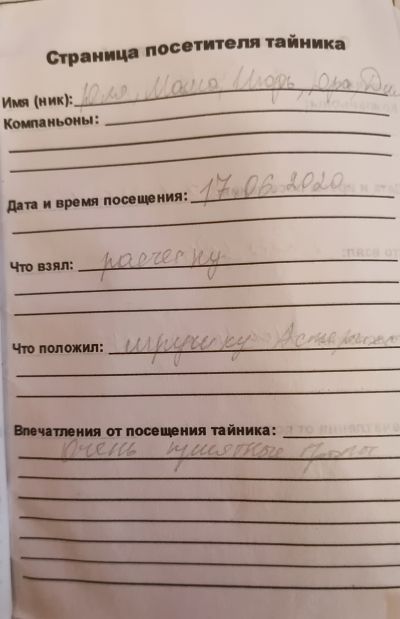 Страница посетителя тайника
Имя (ник): Юля, Маша, Игорь, Юра, Ди
Компаньоны:
Дата и время посещения: 17.06.2020
Что взял: расческу
Что положил: игрушку Астерикс
Впечатления от посещения тайника:
очень приятные